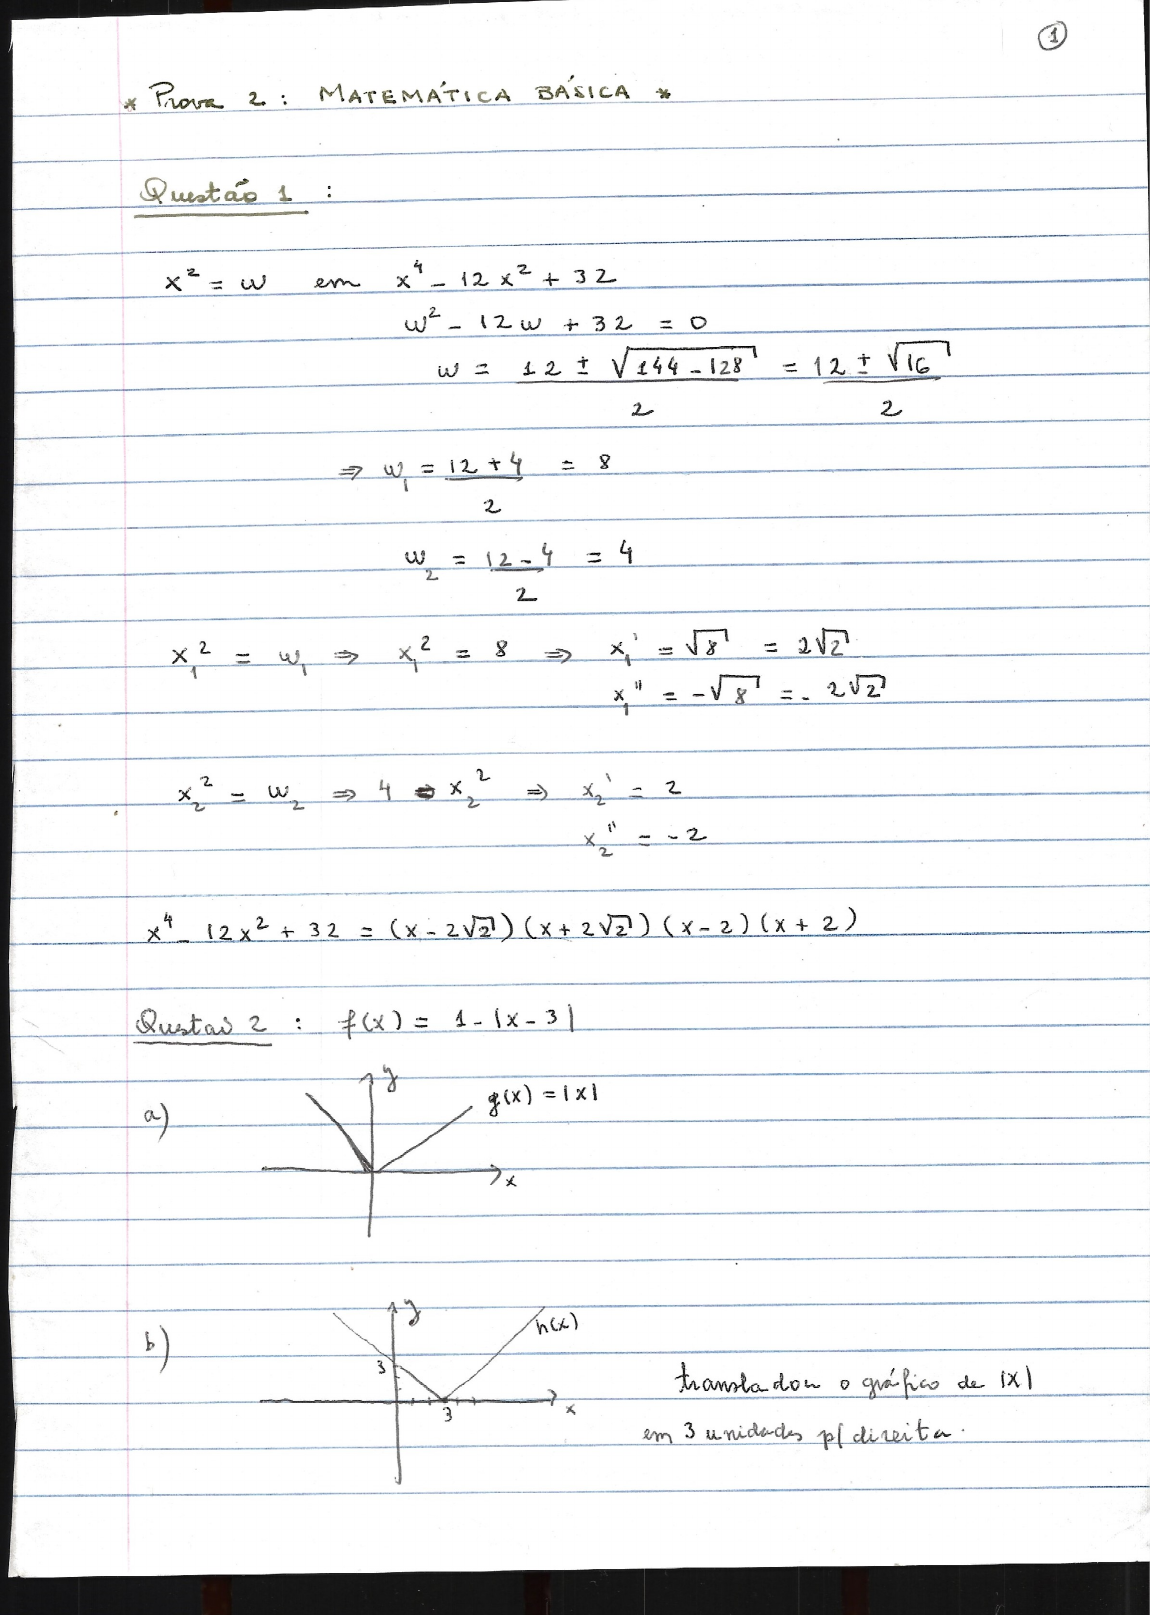 1
* Prova 2 : MATEMÁTICA BÁSICA *
Questão 1 :
x² = w em x⁴ - 12x² + 32
w² - 12w + 32 = 0
w = (12 ± √(144 - 128))/2 = (12 ± √16)/2
⇒ w₁ = (12 + 4)/2 = 8
w₂ = (12 - 4)/2 = 4
x₁² = w₁ ⇒ x₁² = 8 ⇒ x₁' = √8 = 2√2
x₁'' = -√8 = - 2√2
x₂² = w₂ ⇒ 4 = x₂² ⇒ x₂' = 2
x₂'' = -2
x⁴ - 12x² + 32 = (x - 2√2)(x + 2√2)(x - 2)(x + 2)
Questão 2 : f(x) = 1 - |x - 3|
a)
y
g(x) = |x|
x
b)
y
h(x)
3
3
x
transladou o gráfico de |x|
em 3 unidades p/ direita.